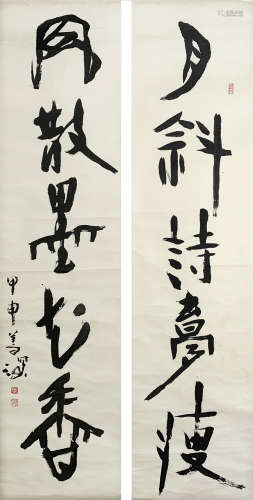 月斜詩夢瘦
風散墨花香
甲申善深